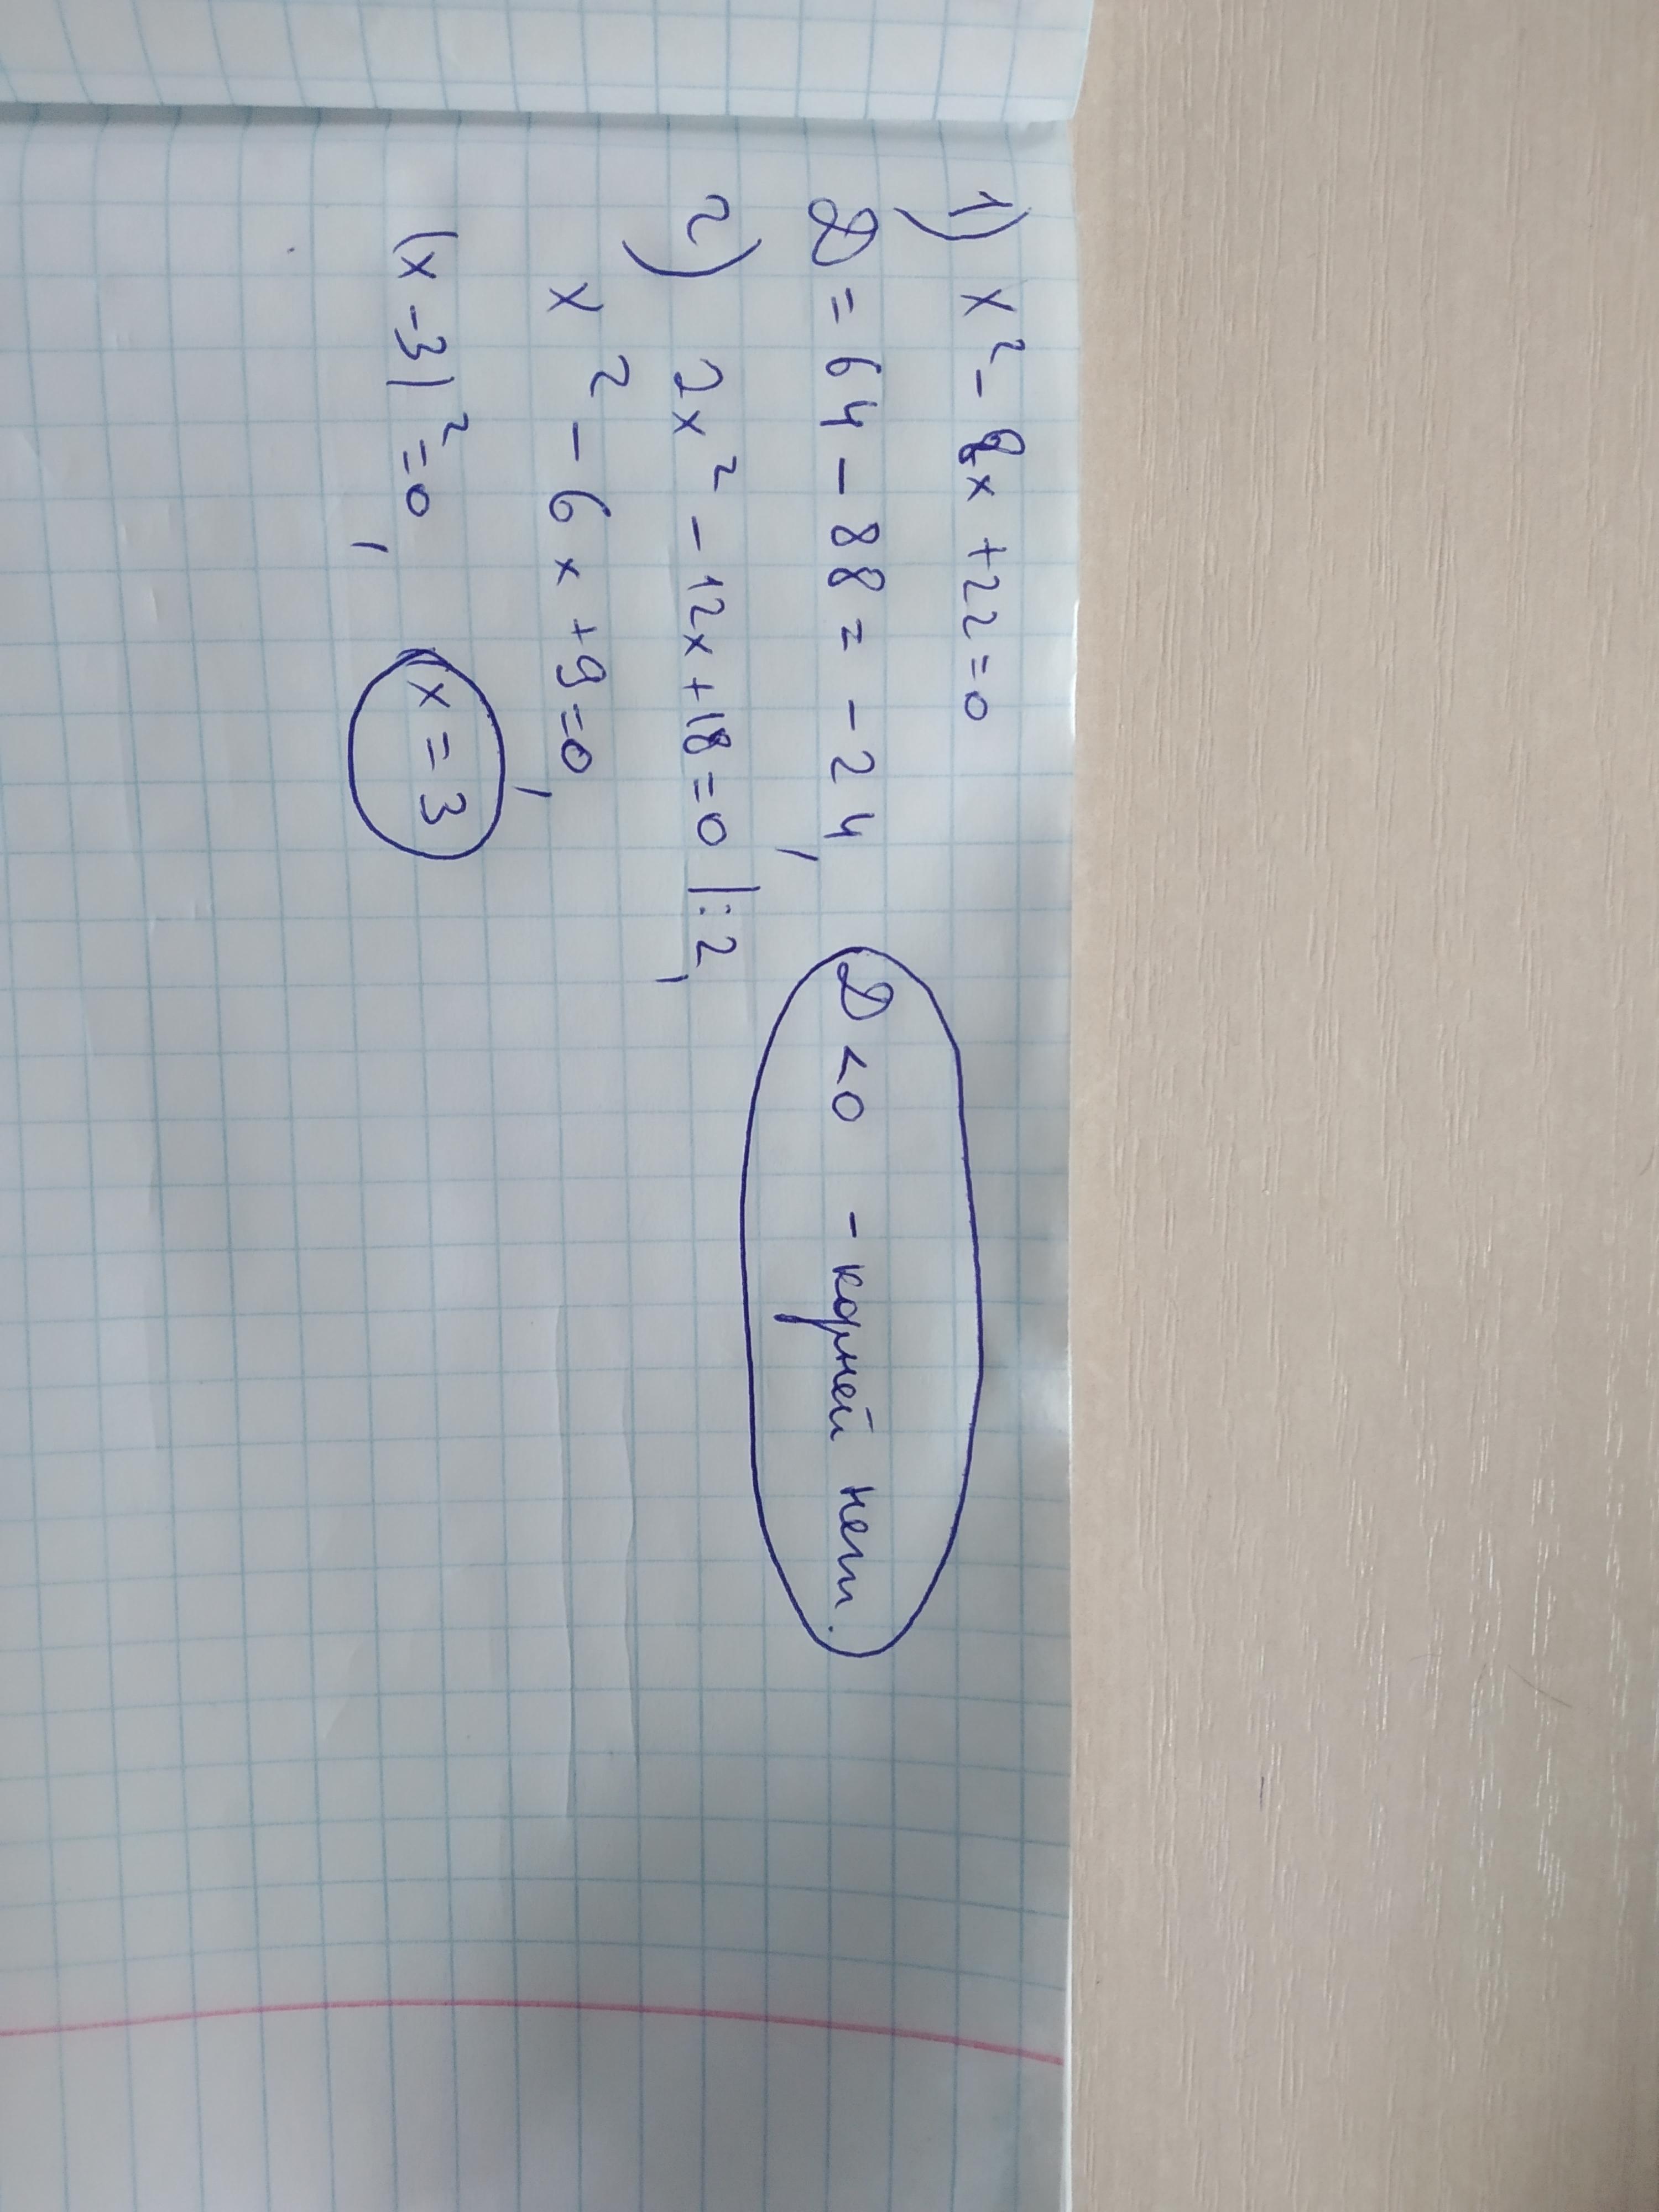 1) x² - 8x + 22 = 0
D = 64 - 88 = -24, D < 0 - корней нет.
2) 2x² - 12x + 18 = 0 |:2,
x² - 6x + 9 = 0,
(x - 3)² = 0, x = 3